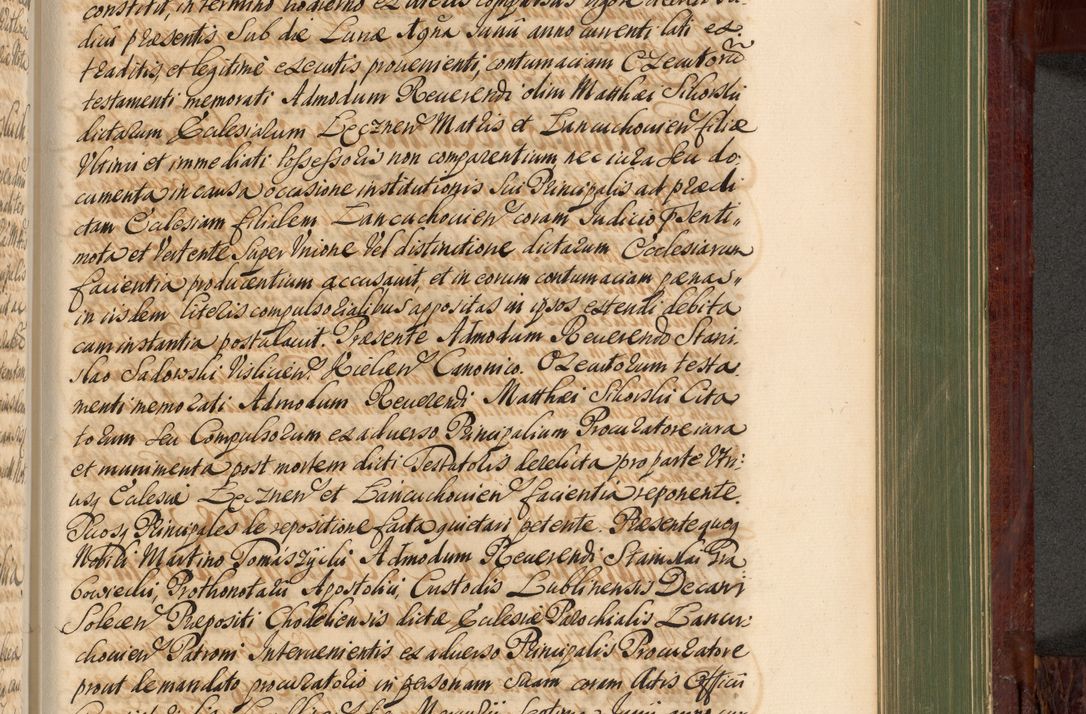 constitit, in termino hodierno ex literis compulsos vigore decreti Ju
dicii præsentis Sub die Lunæ 4gna Junii anno currenti lati ex
traditis, et legitimè executis provenienti, contumaciam Executorũ
testamenti memorati Admodum Reverendi olim Matthæi Sikorski
dictarum Ecclesiarum Łęcznen Matris et Łancuchovien filiæ
Ultimi et immediati Possessoris non comparentium nec iura seu do
cumenta in causa occasione institutionis sui Principalis ad prædi
ctam Ecclesiam filialem Łancuchovien coram Judicio Psenti
mota et Vertente Super Unione Vel distinctione dictarum Ecclesiarum
facientia producentium accusavit, et in eorum contumaciam pænas
in iisdem literis compulsorialibus appositas in ipsos extendi debita
cum instantia postulavit. Præsente Admodum Reverendo Stani
slao Sadowski Vislicien Kielcen Canonico. Executorum testa
menti memorati Admodum Reverendi Matthæi Sikorski Cita
torum seu Compulsorum ex adverso Principalium Procuratore iura
et munimenta post mortem dicti Testatoris derelicta pro parte Utri
usq Ecclesiæ Łęcznen et Łancuchovien facientia reponente.
Suosq Principales de repositione facta quietari petente. Præsente quoq
Nobili Martino Tomaszycki Admodum Reverendi Stanislai Gra
bowiecki, Prothonotarii Apostolici, Custodis Lublinensis Decani
Solecen Præpositi Chodeliensis dictæ Ecclesiæ Parochialis Łancu
chovien Patroni Intervenientis ex adverso Principalis Procuratore
prout de mandato procuratorio in personam suam coram Actis Officii